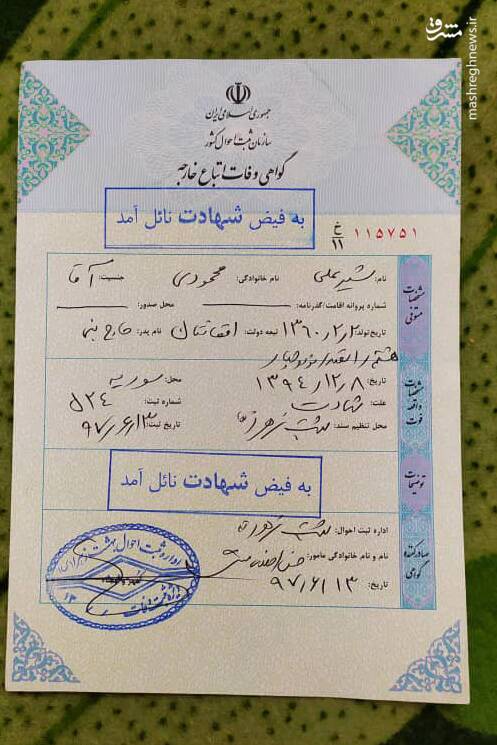 مشرق
mashreghnews.ir
جمهوری اسلامی ایران
سازمان ثبت احوال کشور
گواهی وفات اتباع خارجه
به فیض شهادت نائل آمد
غ ۱۱ ۱۱۵۷۵۱
مشخصات متوفی
نام: شیرعلی نام خانوادگی: محمودی جنسیت: آقا
شماره پروانه اقامت/گذرنامه: محل صدور:
تاریخ تولد: ۱۳۶۰/۲/۲ تبعه دولت: افغانستان نام پدر:
مشخصات واقعه فوت
هشتم اسفند نود و چهار
تاریخ: ۱۳۹۴/۱۲/۸ محل: سوریه
علت: شهادت شماره ثبت:
محل تنظیم سند: بهشت زهرا تاریخ ثبت: ۹۷/۶/۱۳
توضیحات
به فیض شهادت نائل آمد
صادرکننده گواهی
اداره ثبت احوال: بهشت زهرا
نام و نام خانوادگی مامور:
تاریخ: ۹۷/۶/۱۳
اداره ثبت احوال بهشت زهرا